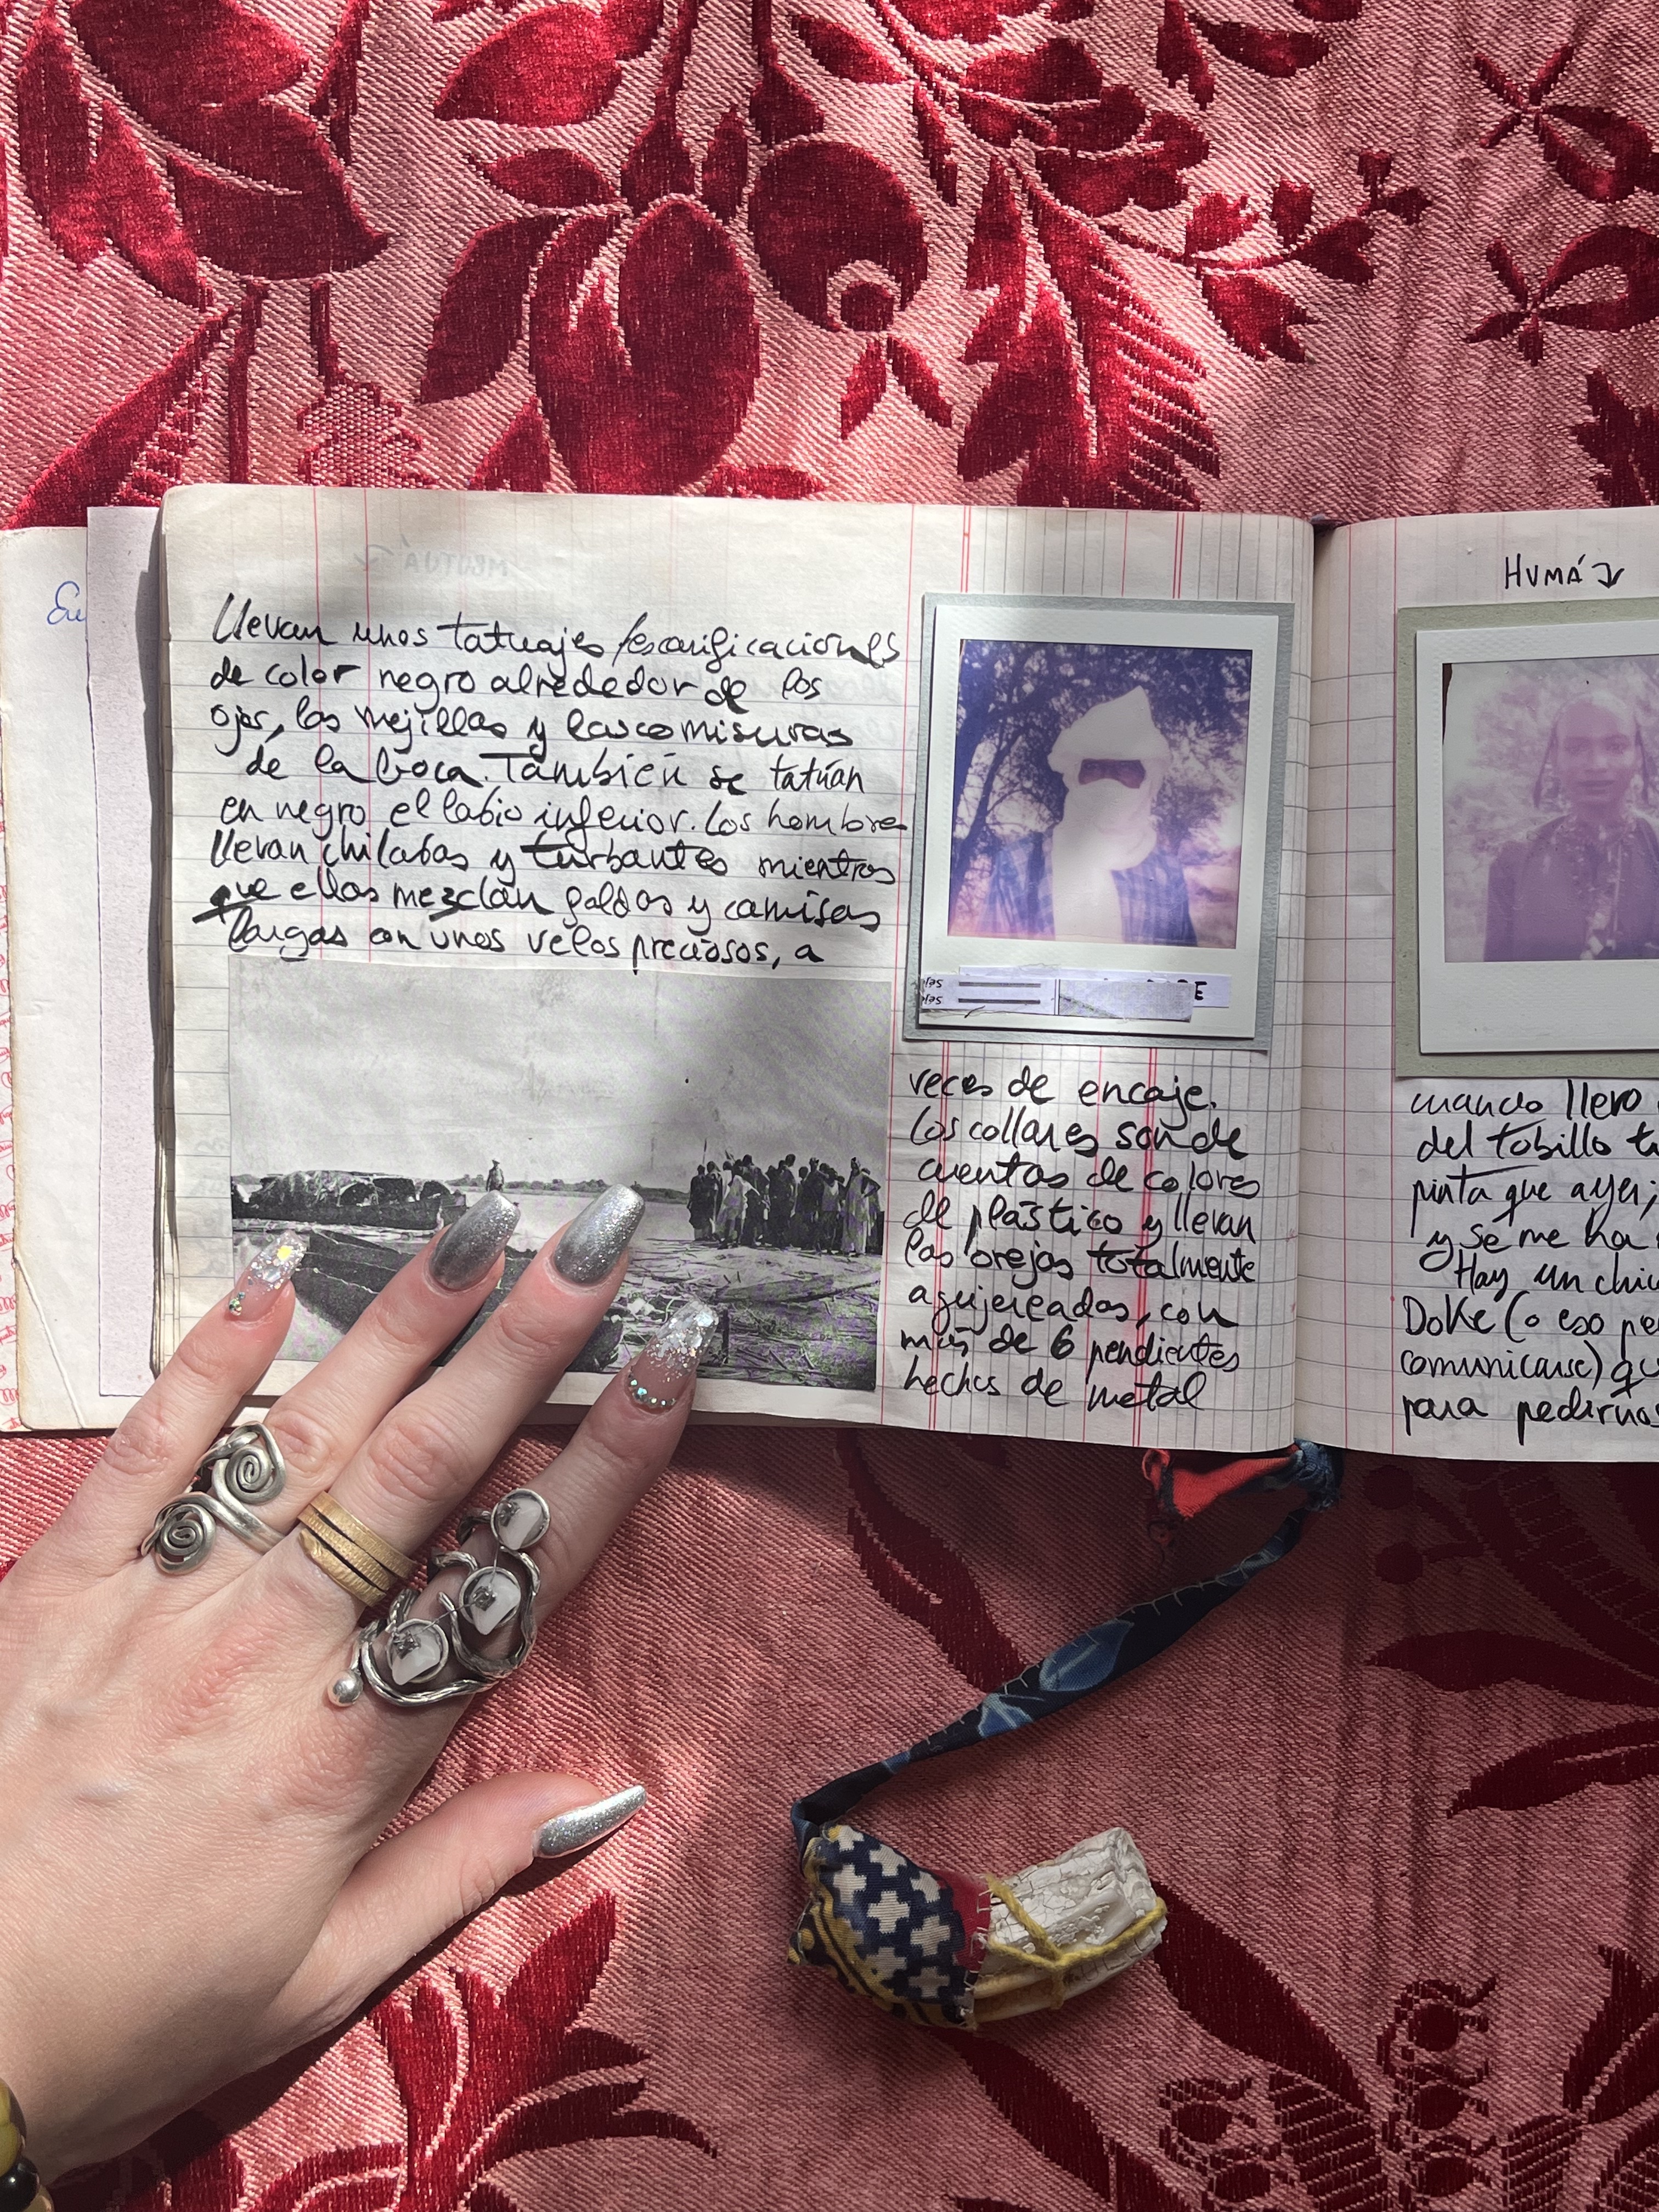 Eu
llevan unos tatuajes /escarificaciones
de color negro alrededor de los
ojos, las mejillas y las comisuras
de la boca. También se tatúan
en negro el labio inferior. Los hombres
llevan chilabas y turbantes mientras
que ellas mezclan faldas y camisas
largas con unos velos preciosos, a
veces de encaje.
Los collares son de
cuentas de colores
de plástico y llevan
las orejas totalmente
agujereadas, con
más de 6 pendientes
hechos de metal
HUMÁ
cuando llevo
del tobillo
pinta que ayer;
y se me ha
Hay un
Doké (o eso
comunicarse)
para pedirnos